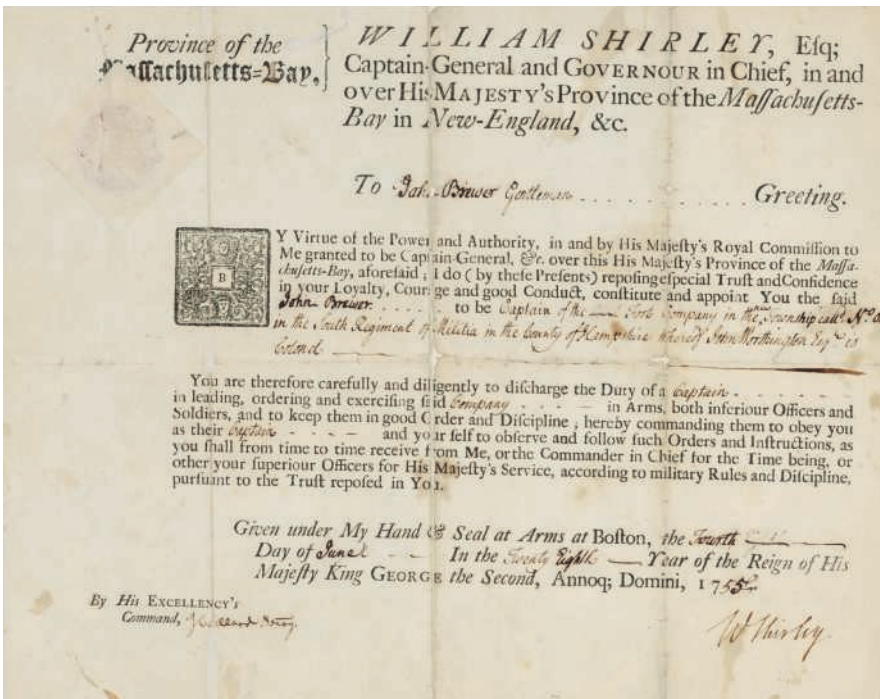 Province of the
Maſſachuſetts=Bay,
WILLIAM SHIRLEY, Eſq;
Captain-General and GOVERNOUR in Chief, in and
over His MAJESTY's Province of the Maſſachuſetts-
Bay in New-England, &c.
To John Brewer Gentleman . . . . . . . . . . Greeting.
BY Virtue of the Power and Authority, in and by His Majeſty's Royal Commiſſion to
Me granted to be Captain-General, &c. over this His Majeſty's Province of the Maſſa-
chuſetts-Bay, aforeſaid ; I do ( by theſe Preſents) repoſing eſpecial Truſt and Confidence
in your Loyalty, Courage and good Conduct, conſtitute and appoint You the ſaid
John Brewer . . . . . . to be Captain of the — Foot Company in the Township call'd No.
in the South Regiment of Militia in the County of Hampshire whereof John Worthington Esqr. is
Colonel
You are therefore carefully and diligently to diſcharge the Duty of a Captain . . . . .
in leading, ordering and exerciſing ſaid Company . . . . — in Arms, both inferiour Officers and
Soldiers, and to keep them in good Order and Diſcipline ; hereby commanding them to obey you
as their Captain . . . — and your ſelf to obſerve and follow ſuch Orders and Inſtructions, as
you ſhall from time to time receive from Me, or the Commander in Chief for the Time being, or
other your ſuperiour Officers for His Majeſty's Service, according to military Rules and Diſcipline,
purſuant to the Truſt repoſed in You.
Given under My Hand & Seal at Arms at Boſton, the Fourth
Day of June — — In the Twenty Eighth — Year of the Reign of His
Majeſty King GEORGE the Second, Annoq; Domini, 1755.
By His EXCELLENCY's
Command,
W Shirley